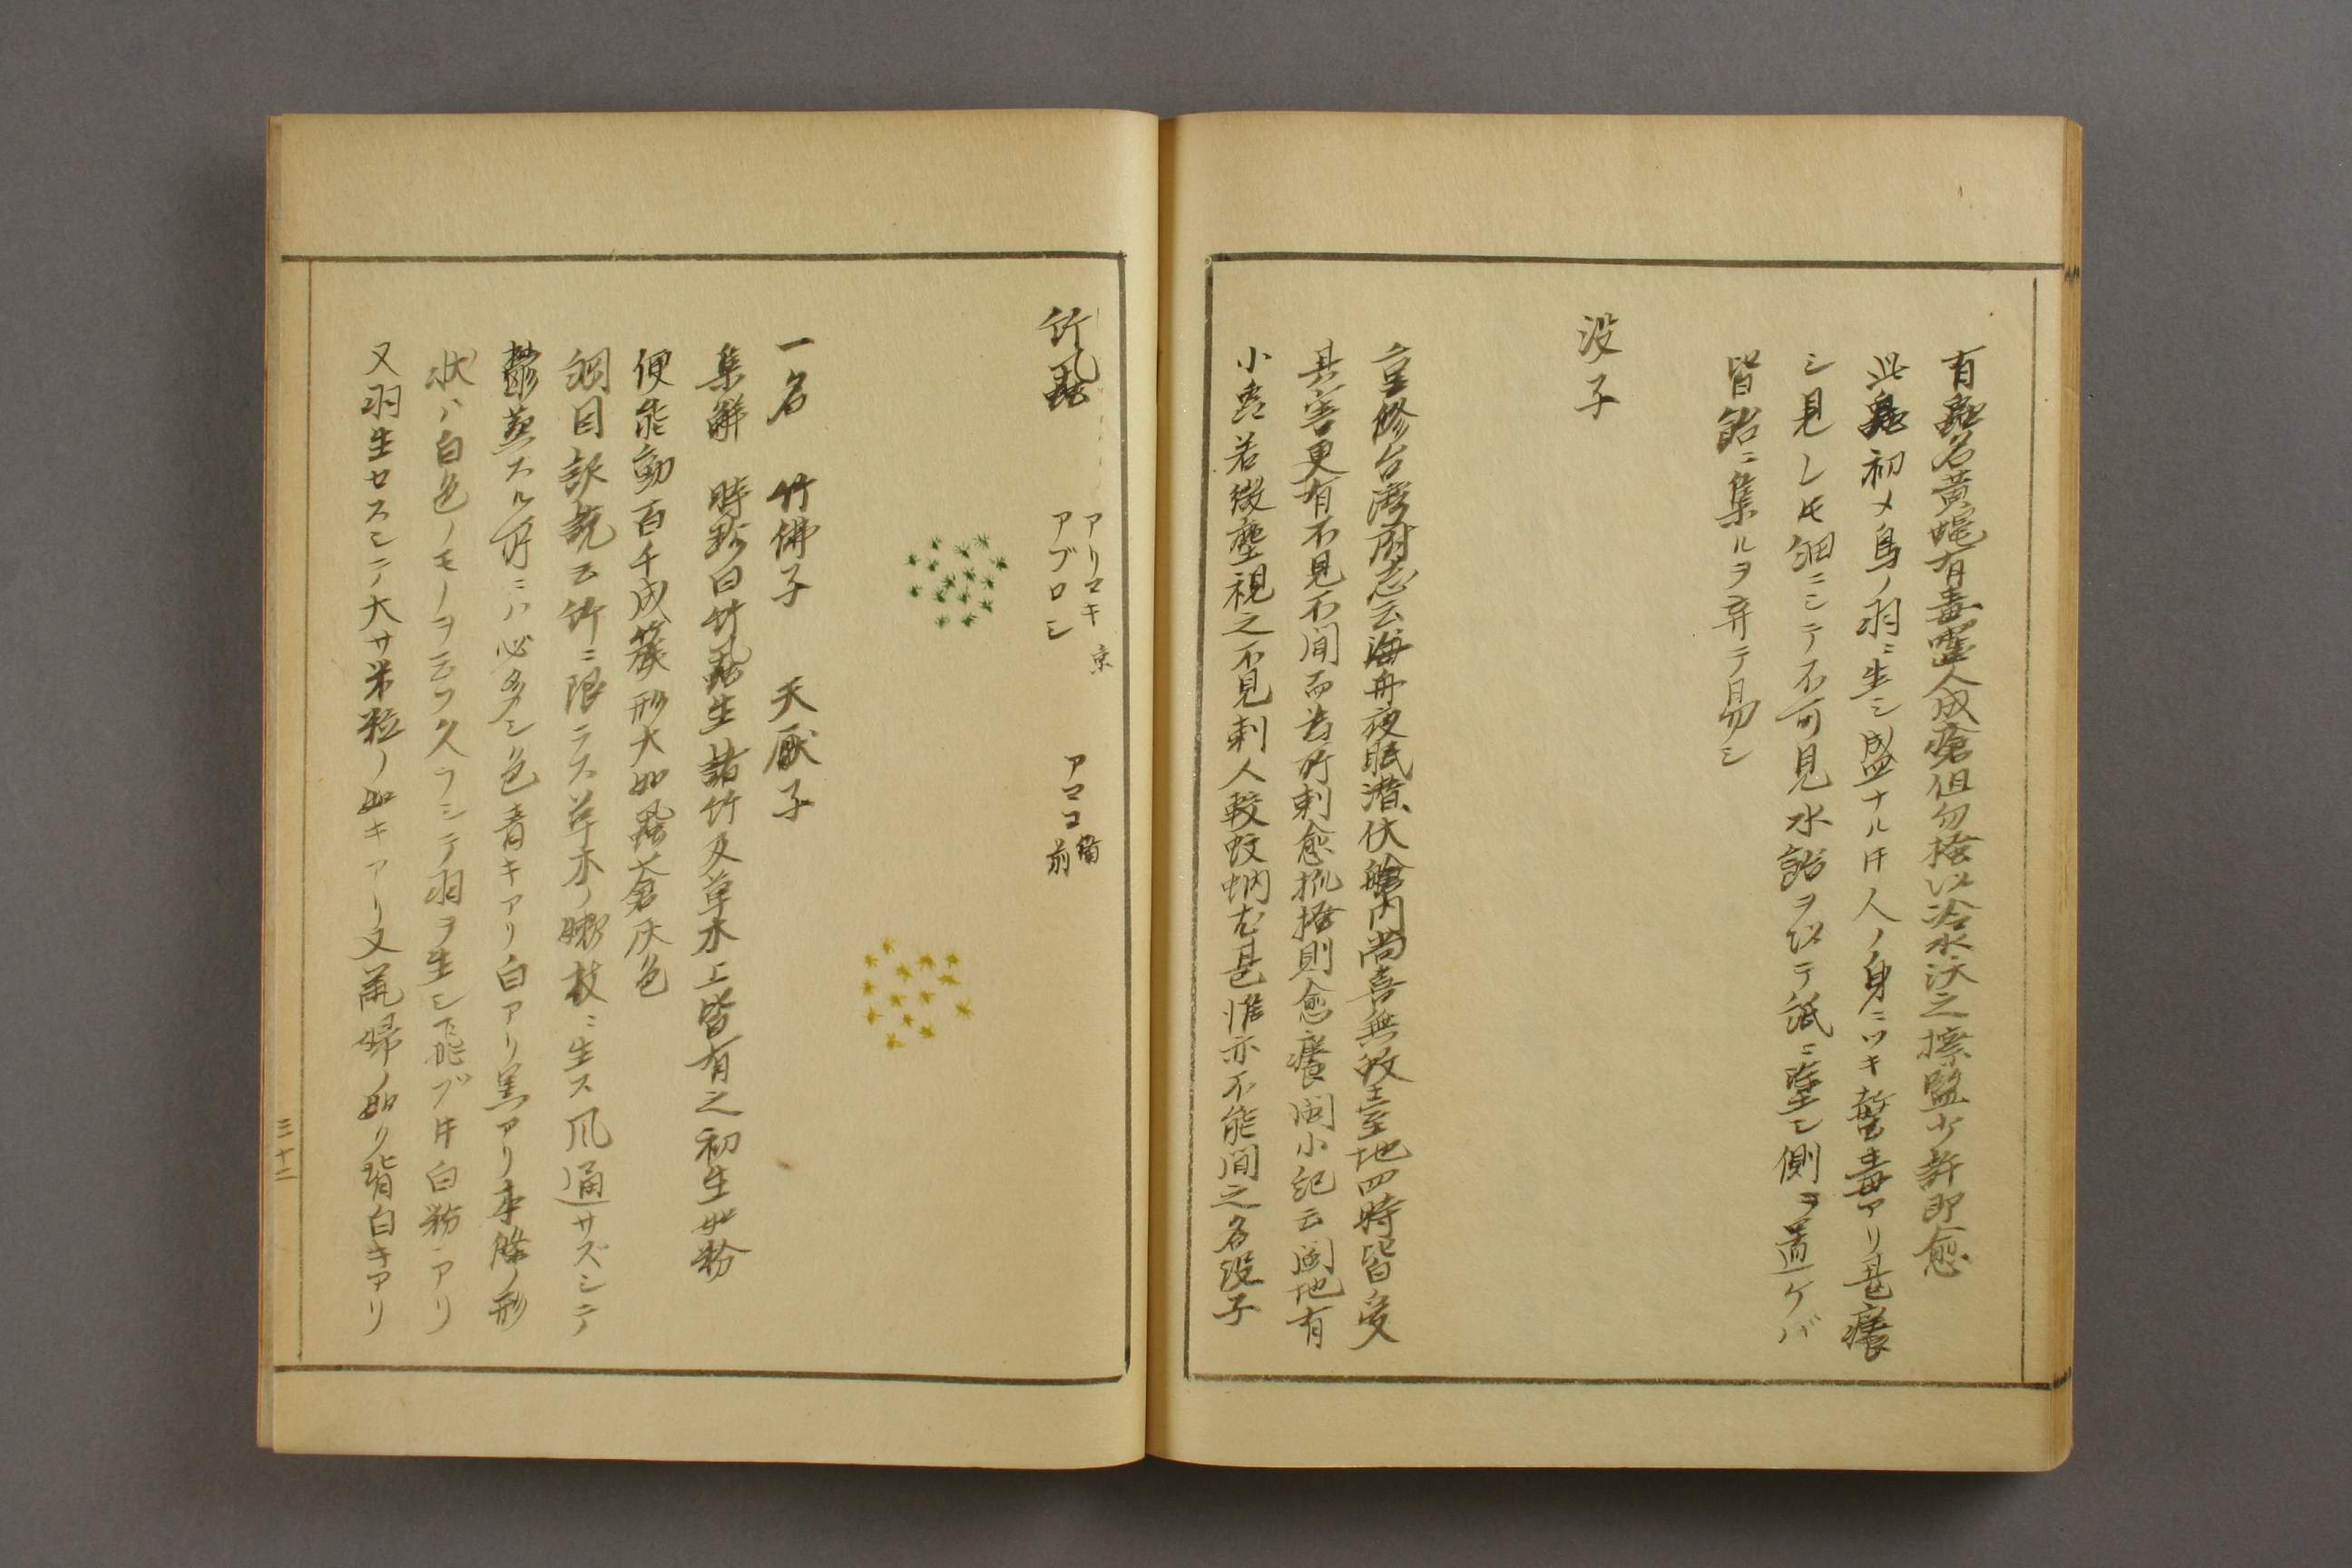 有蝨名黄蠅有毒囓人成瘡但勿搔以冷水沃之擦鹽少許即愈
此蝨初メ鳥ノ羽ニ生シ盛ナル時人ノ身ニツキ螫毒アリ甚癢
シ見レ𪜈細ニシテ不可見水飴ヲ以テ紙ニ塗シ側ヲ置ケバ
皆飴ニ集ルヲ弃テ易シ
没子
重修台湾府志云海舟夜眠潜伏艙内尚喜無蚊至室地四時皆受
其害更有不見不聞而為所刺愈抓搔則愈癢閩小記云閩地有
小虫若微塵視之不見刺人較蚊蚋尤甚惟亦不能聞之名没子
竹蝨
アリマキ 京
アブロシ
アマコ 備前
一名 竹佛子 天厭子
集解 時珍曰竹蝨生諸竹及草木上皆有之初生如粉
便能動百千成簇形大如蝨蒼灰色
綱目啓蒙云竹ニ限ラス草木ノ嫩枝ニ生ス風通サズシテ
鬱蒸スル所ニハ必多シ色青キアリ白アリ黒アリ本條ノ形
状ハ白色ノモノヲ云フ久フシテ羽ヲ生シ飛ブ時白粉アリ
又羽生セスシテ大サ米粒ノ如キアリ又鼠婦ノ如ク背白キアリ
三十二